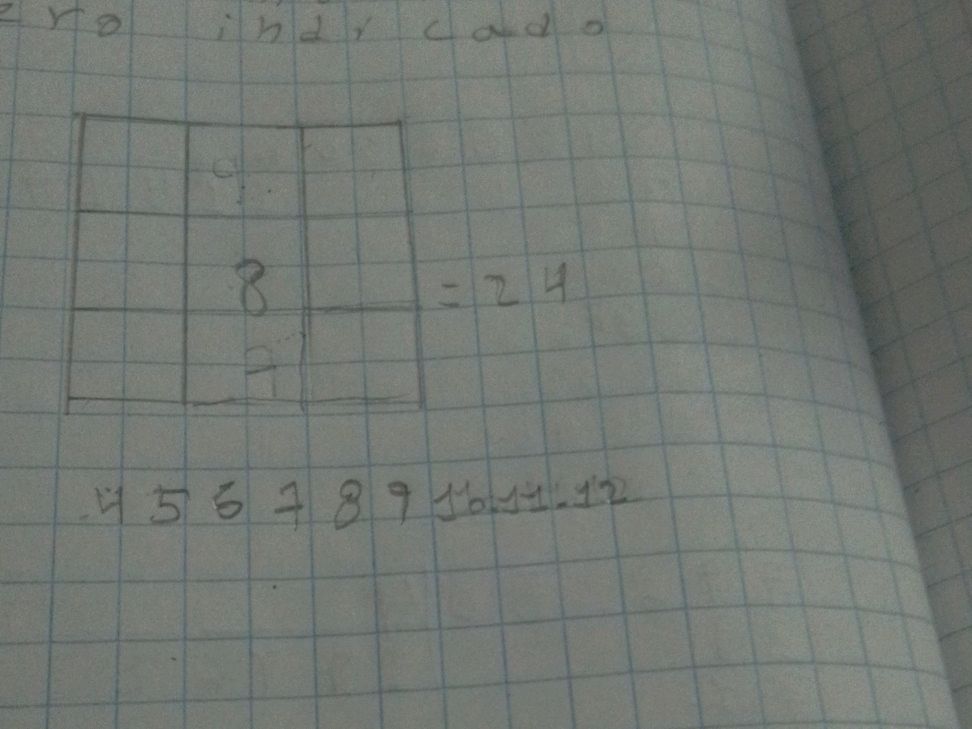 ero indicado
8
= 24
7
4 5 6 7 8 9 10.11.12